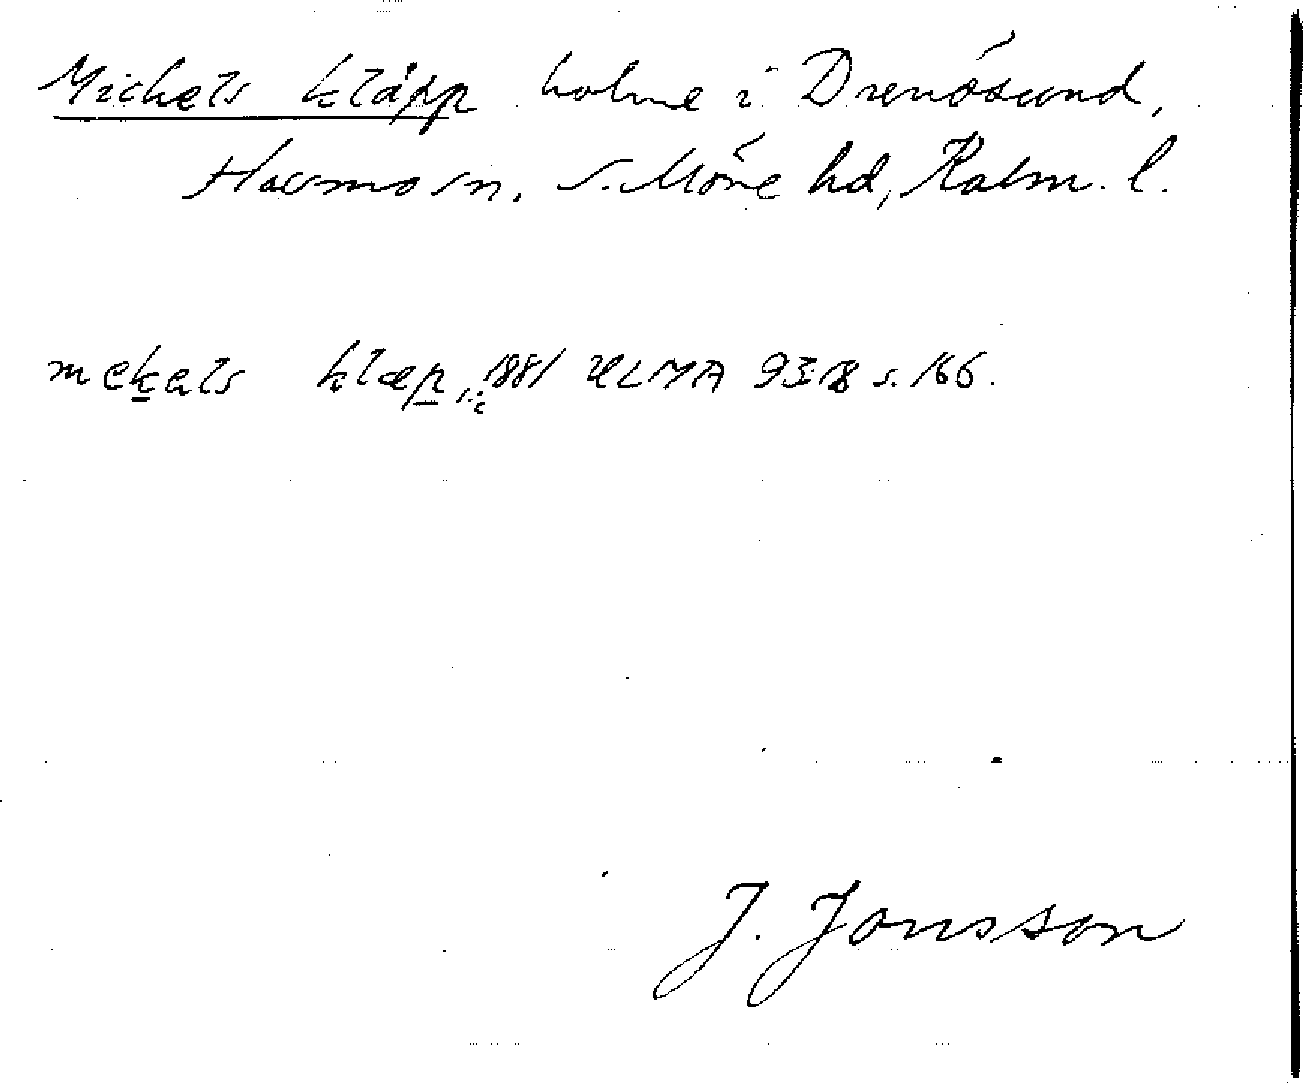 Mickels kläpp holme i Drenösund,
Hossmo sn, S. Möre hd, Kalm. l.
mekals klæp, sic 1881 ULMA 93:18 s. 166.
J. Jonsson